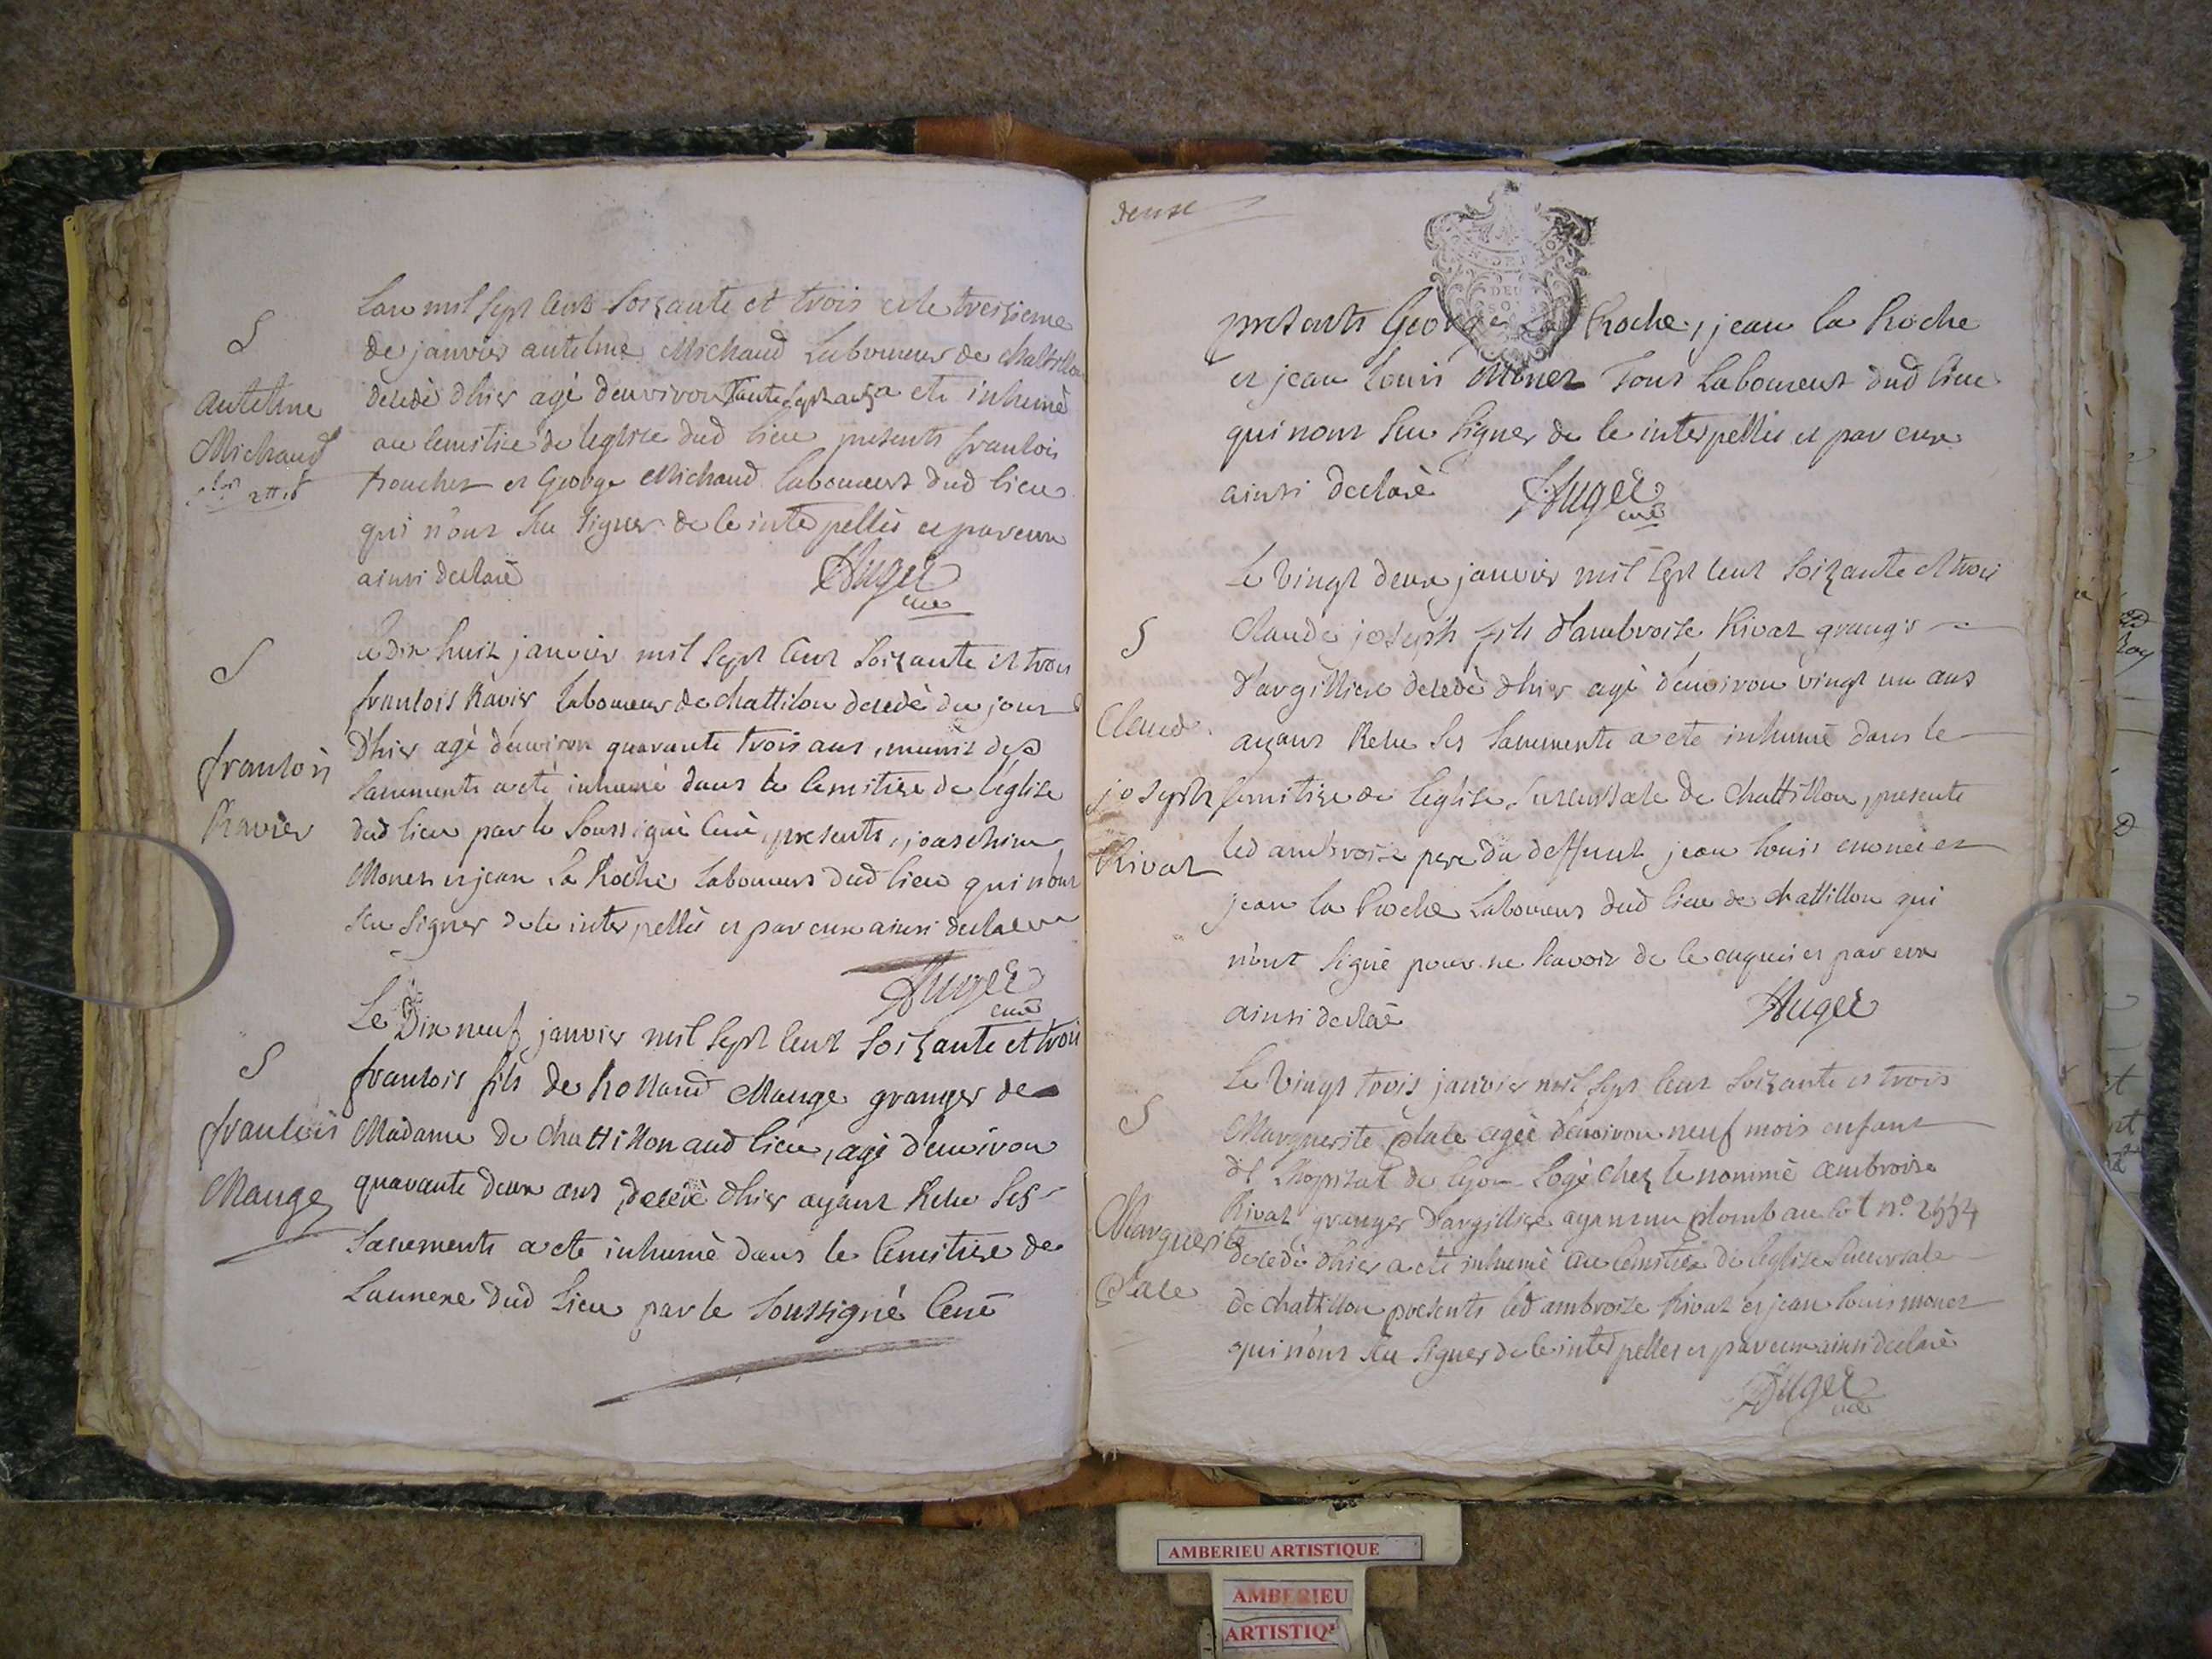 S
Antelme
Michaud
Lan mil sept cents soixante et trois et le treizieme
de janvier antelme Michaud Laboureur de Chattillon
decedè d'hier agé denviron sept ans a eté inhumè
au Cemitiere de leglise dud lieu presents francois
trouchet et George Michaud Laboureurs dud lieu
qui n'ont sceu signer de ce interpellès et par eux
ainsi declarè Auger
curé
S
francois
Ravier
Le Dix huit janvier mil sept cent soixante et trois
francois Ravier Laboureur de Chattilon decedè du jour
d'hier agé denviron quarante trois ans, munit des
sacrements a eté inhumé dans le Cemitiere de leglise
dud lieu par le soussigné Curé, presents, joaschim
Monet et jean La Roche Laboureurs dud lieu qui n'ont
sceu signer de ce interpellès et par eux ainsi declare
Auger
curé
S
francois
Mange
Le Dix neuf janvier mil sept cent soixante et trois
francois fils de Rolland Mange granger de
Madame de Chattillon aud lieu, agé d'environ
quarante deux ans decedé d'hier ayant Recu ses
sacrements a eté inhumè dans le Cemitiere de
Lannexe dud lieu par le soussigné Curé
deuse
presents George La Roche, jean la Roche
et jean Louis Monet Tous Laboureurs dud lieu
qui n'ont sceu signer de ce interpellès et par eux
ainsi declaré Auger
curé
S
Claude
joseph
Rivat
Le vingt deux janvier mil sept cent soixante et trois
Claude joseph fils d'ambroise Rivat grangr
d'argilliere decedè d'hier agé denviron vingt un ans
ayant Recu ses sacrements a eté inhumé dans le
Cemitiere de leglise succursale de Chattillon, presents
led ambroise pere du deffunt jean Louis monet et
jean la Roche Laboureurs dud lieu de Chattillon qui
n'ont signé pour ne scavoir de ce enquis et par eux
ainsi declaré Auger
S
Marguerite
plate
Le vingt trois janvier mil sept cent soixante et trois
Marguerite plate agée denviron neuf mois enfant
de Lhopital de Lyon Logé chez le nommè ambroise
Rivat granger d'argilliere ayant un plomb au Cot n.o 2554
decedè d'hier a eté inhumè au Cemitiere de leglise succursale
de Chattillon presents led ambroise Rivat et jean Louis monet
qui n'ont sceu signer de ce interpelles et par eux ainsi declaré
Auger
curé
AMBERIEU ARTISTIQUE
AMBERIEU
ARTISTIQ